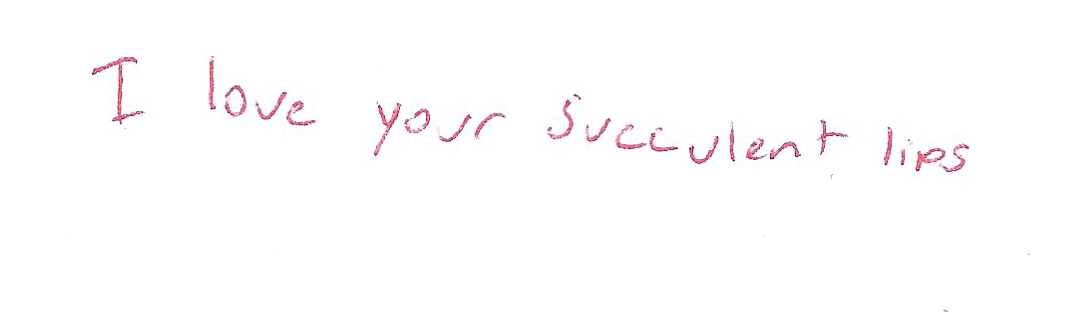 I love your succulent lips